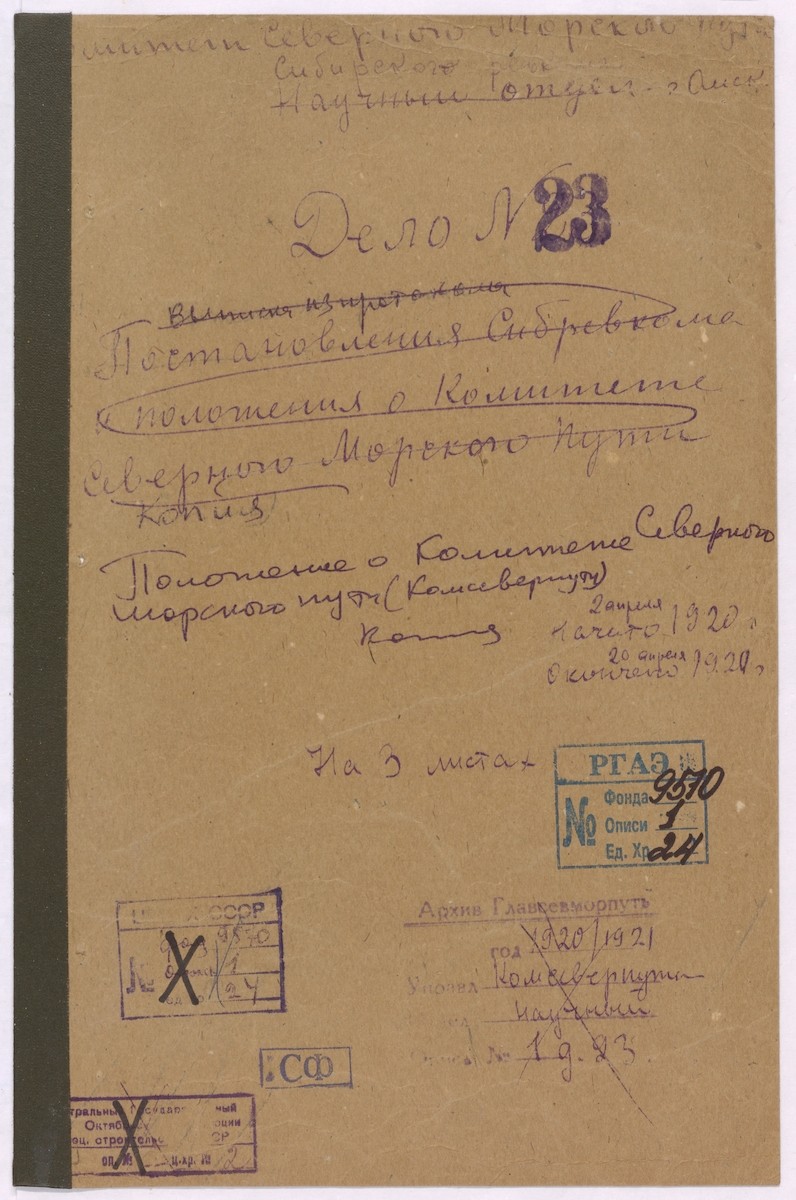 Комитет Северного Морского пути
Сибирского
Научный отдел г. Омск
Дело № 23
Выписка из протокола
Постановления Сибревкома
и положения о Комитете
Северного Морского Пути
Копия
Положение о Комитете Северного
морского пути (Комсеверпути)
копия
2 апреля
Начато 1920 г.
20 апреля
Окончено 1920 г.
На 3 листах
РГАЭ
№
Фонда 9570
Описи 1
Ед. Хр. 24
СССР
фонд 9570
№ опись 1
24
Архив Главсевморпуть
год 1920/1921
Комсеверпути
научный
№ 1 д. 23.
СФ
тральный Государ ный
Октяб ции
оц. строительс СР
оп. № ц.хр. № 2